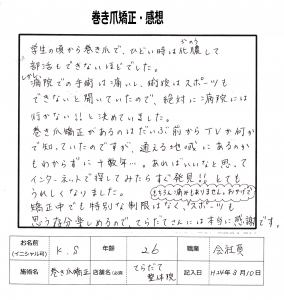 巻き爪矯正・感想
学生の頃から巻き爪で、ひどい時は化膿して
かのう
部活もできないほどでした。
しかし
病院での手術は痛いし、術後はスポーツも
できないと聞いていたので、絶対に病院には
行かない!!と決めていました。
巻き爪矯正があるのはだいぶ前からTVか何か
で知っていたのですが、通える地域にあるのか
もわからずに十数年…。あればいいなと思って
インターネットで探してみたらすぐ発見!!とても
うれしくなりました。
もちろん痛みもありません。おかげで
矯正中でも特別な制限はなく、スポーツも
思う存分楽しめるので、てらだてさんには本当に感謝です。
お名前
(イニシャル可)
K.S
年齢
26
職業
会社員
施術名
巻き爪矯正
店舗名(必須)
てらだて
整体院
記入日
H24年8月10日